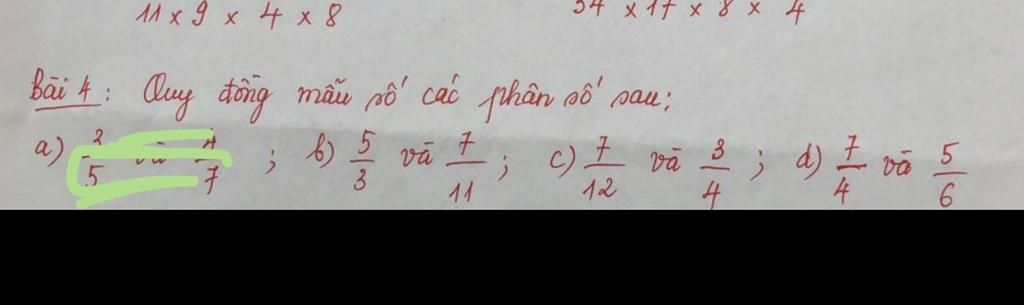 11 x 9 x 4 x 8 34 x 17 x 8 x 4
Bài 4: Quy đồng mẫu số các phân số sau:
a) 3/5 và 4/7 ; b) 5/3 và 7/11 ; c) 7/12 và 3/4 ; d) 7/4 và 5/6